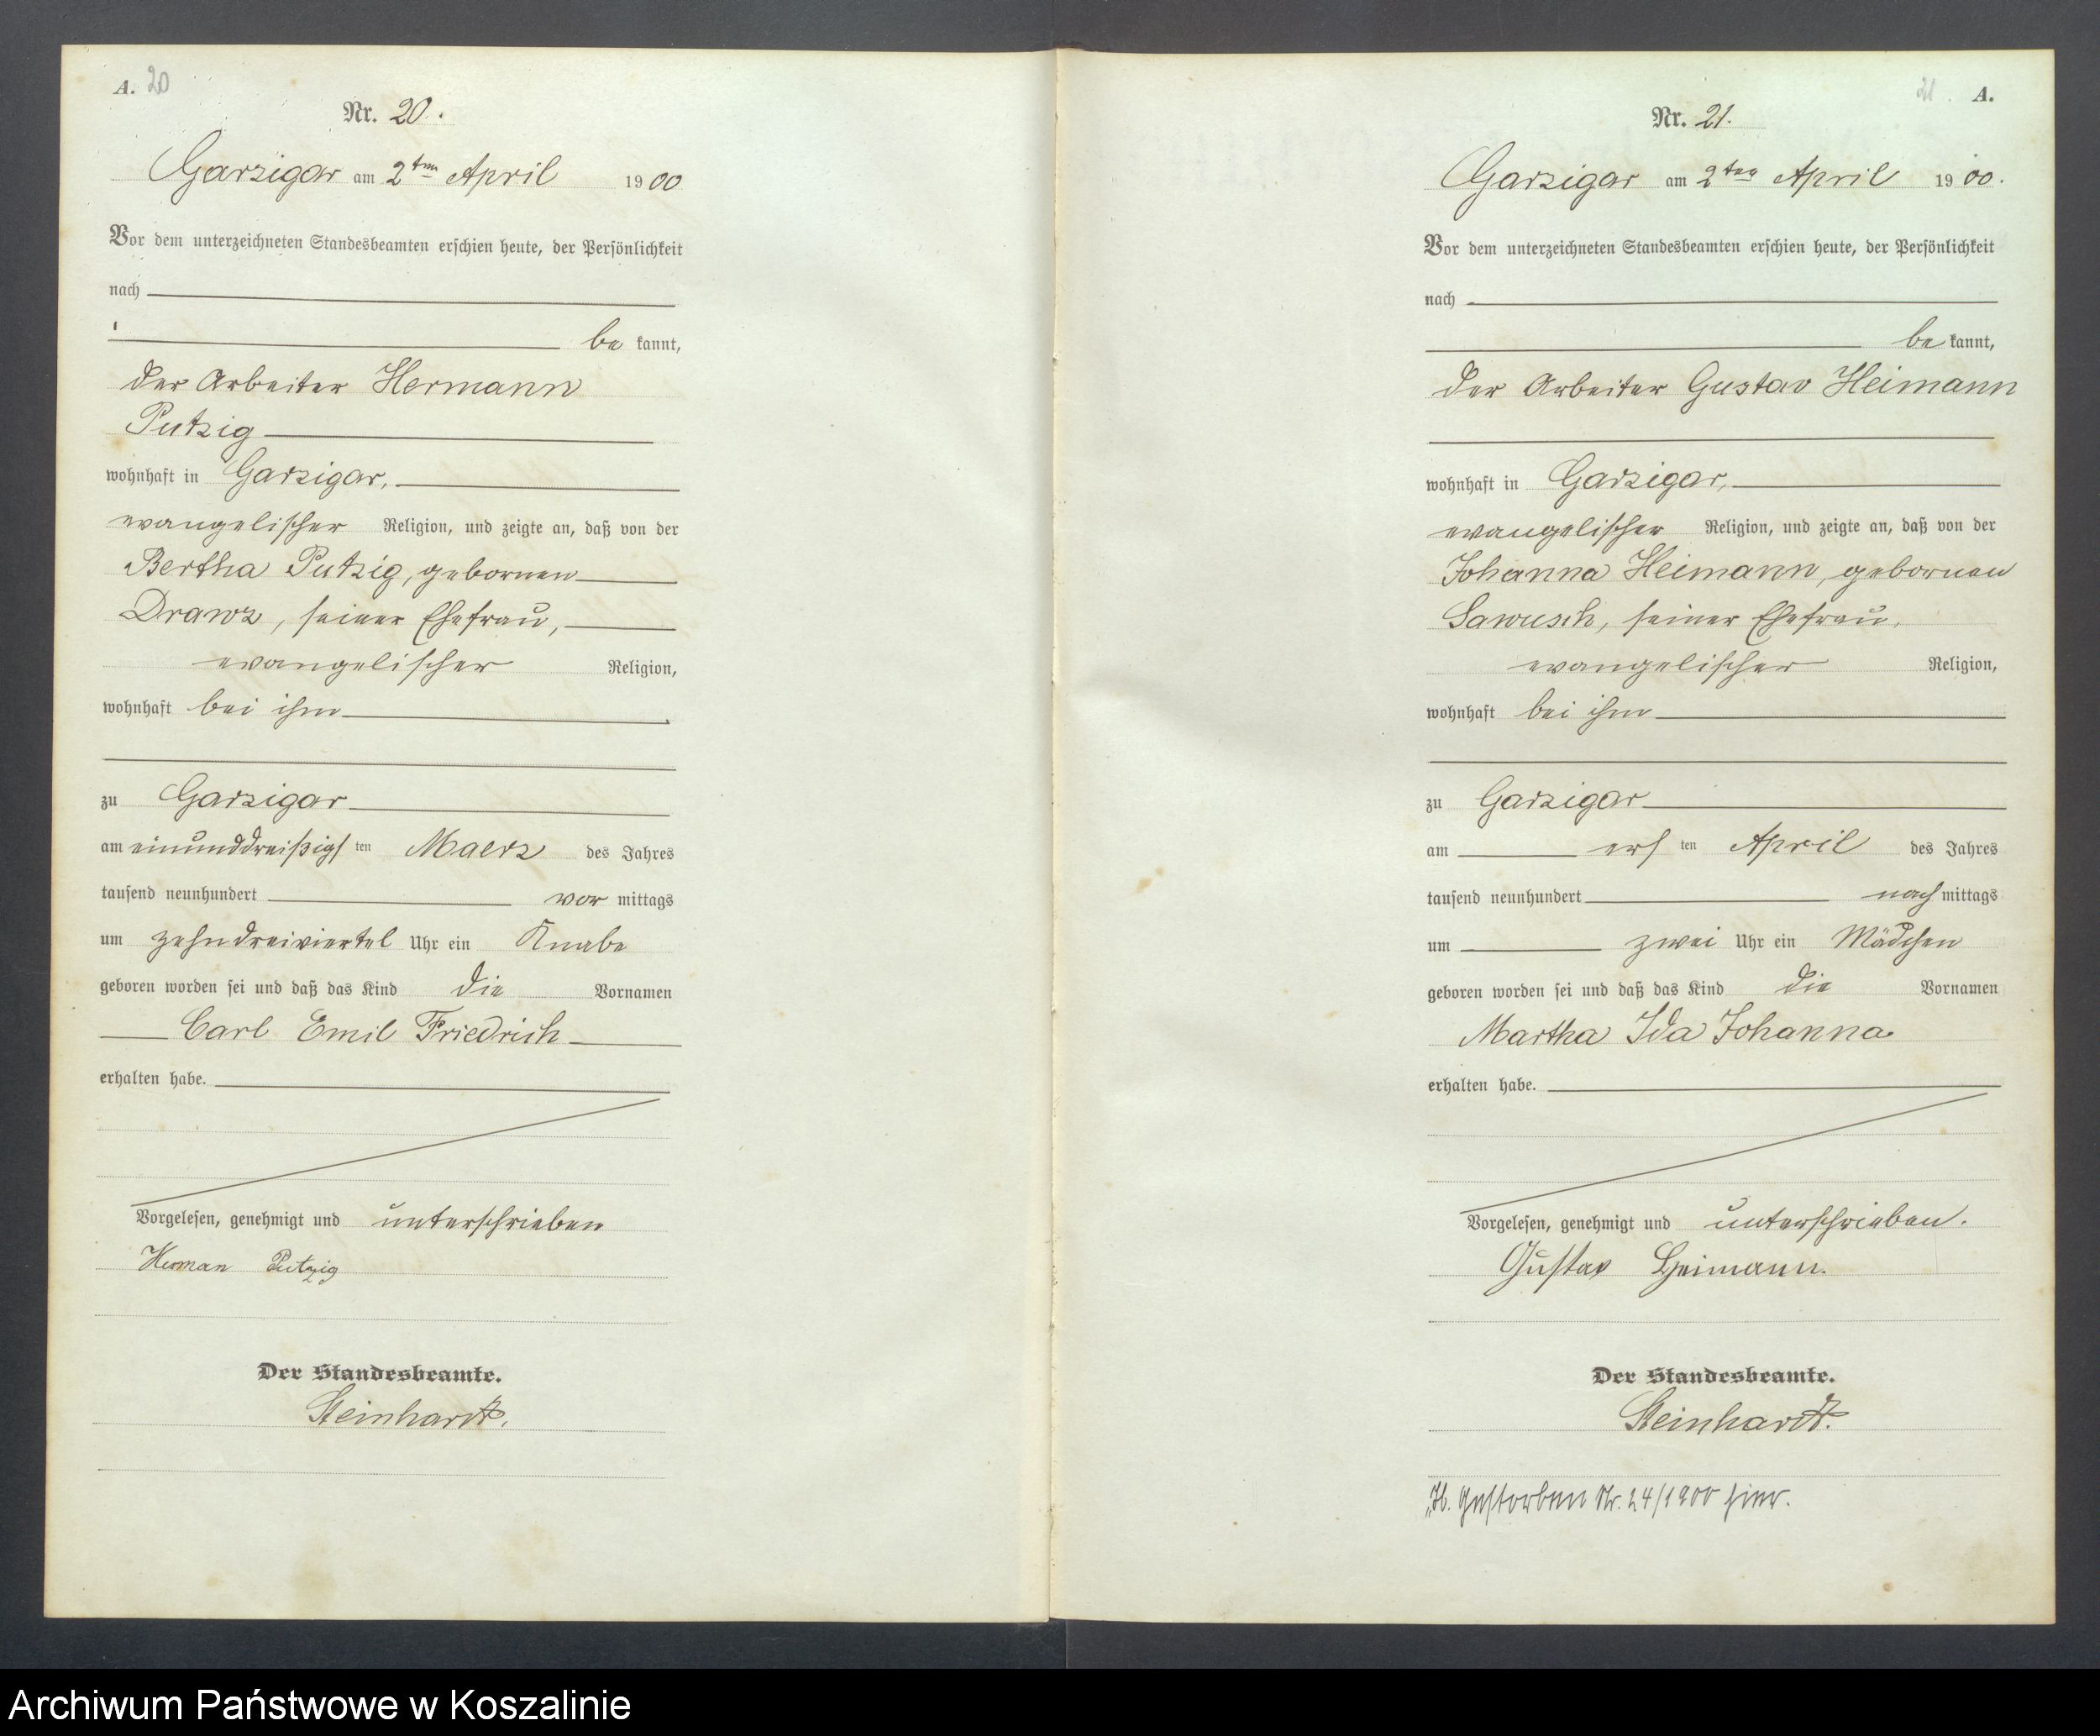 A. 20
Nr. 20.
Garzigar am 2ten April 1900
Vor dem unterzeichneten Standesbeamten erschien heute, der Persönlichkeit
nach
be kannt,
der Arbeiter Hermann
Putzig
wohnhaft in Garzigar,
evangelischer Religion, und zeigte an, daß von der
Bertha Putzig, gebornen
Drawz, seiner Ehefrau,
evangelischer Religion,
wohnhaft bei ihm
zu Garzigar
am einunddreißigsten Maerz des Jahres
tausend neunhundert vor mittags
um zehndreiviertel Uhr ein Knabe
geboren worden sei und daß das Kind die Vornamen
Carl Emil Friedrich
erhalten habe.
Vorgelesen, genehmigt und unterschrieben
Herman Putzig
Der Standesbeamte.
Steinhardt.
21. A.
Nr. 21.
Garzigar am 2ten April 1900.
Vor dem unterzeichneten Standesbeamten erschien heute, der Persönlichkeit
nach
be kannt,
der Arbeiter Gustav Heimann
wohnhaft in Garzigar,
evangelischer Religion, und zeigte an, daß von der
Johanna Heimann, gebornen
Sawusch, seiner Ehefrau,
evangelischer Religion,
wohnhaft bei ihm
zu Garzigar
am ersten April des Jahres
tausend neunhundert nach mittags
um zwei Uhr ein Mädchen
geboren worden sei und daß das Kind die Vornamen
Martha Ida Johanna
erhalten habe.
Vorgelesen, genehmigt und unterschrieben.
Gustav Heimann.
Der Standesbeamte.
Steinhardt.
gestorben Nr. 24/1900 hier.
Archiwum Państwowe w Koszalinie